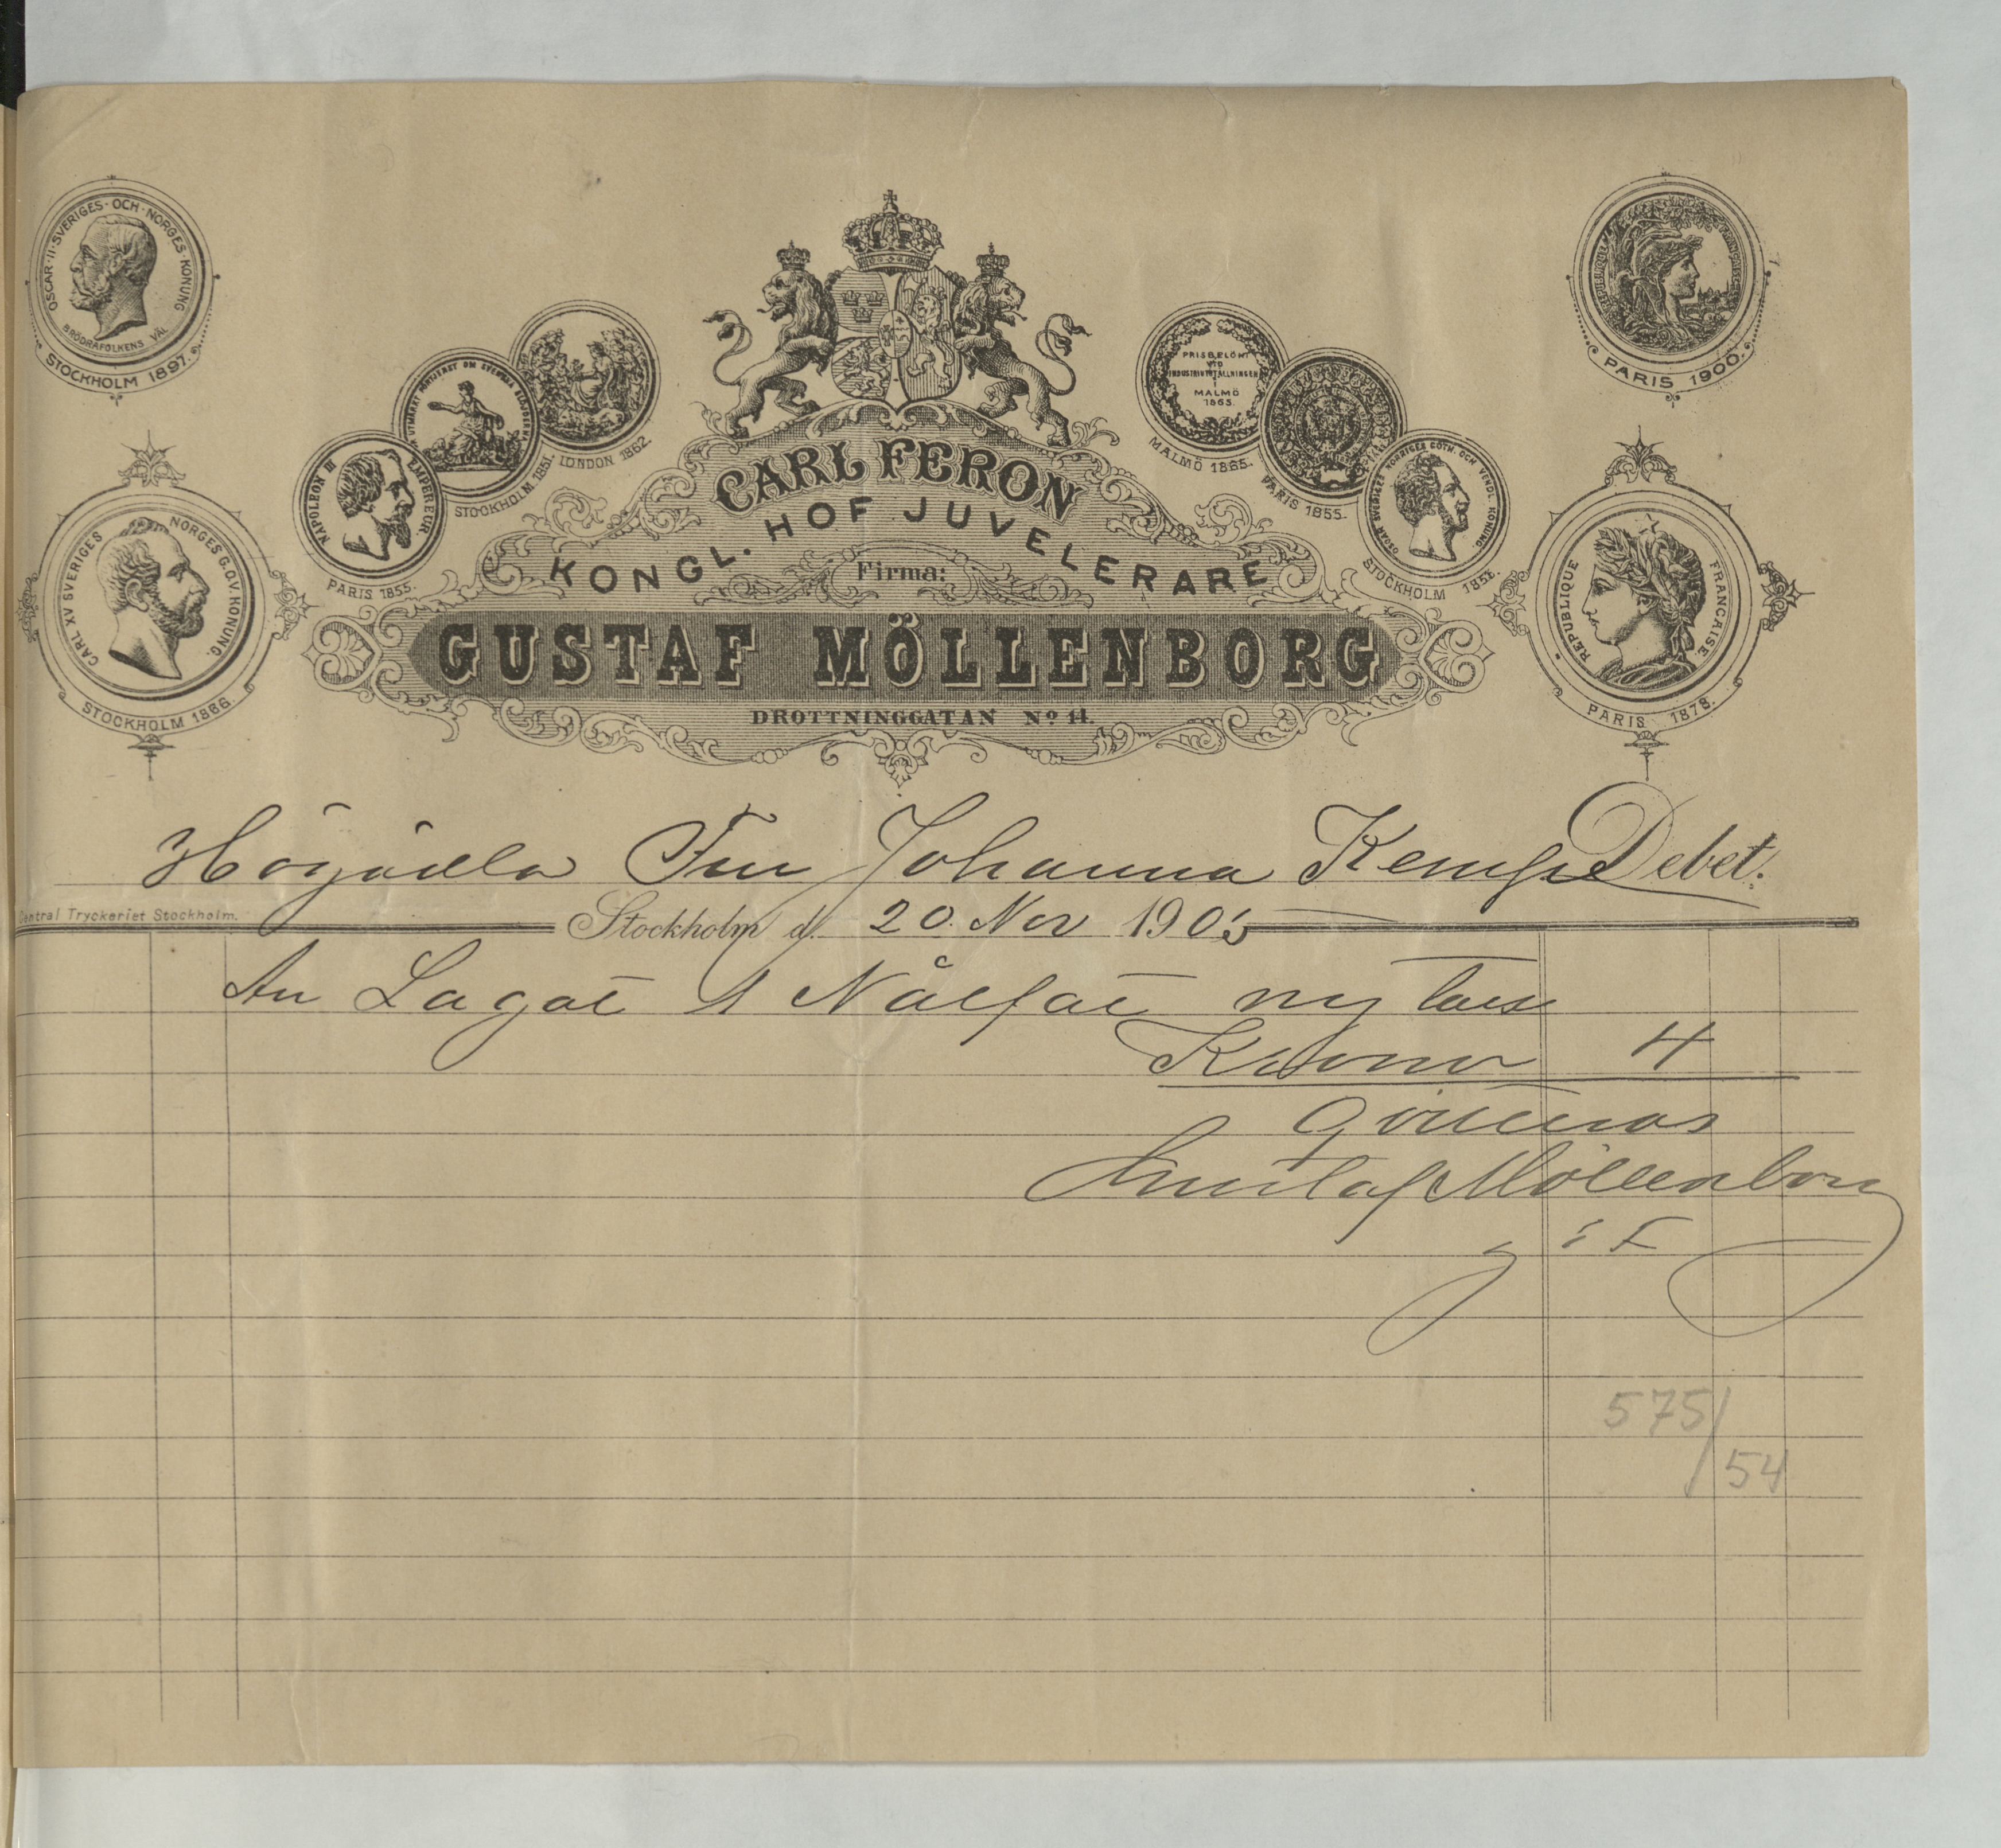 OSCAR·II·SVERIGES·OCH·NORGES·KONUNG
BRÖDRAFOLKENS VÄL
STOCKHOLM 1897.
CARL XV SVERIGES NORGES G.O.V. KONUNG.
STOCKHOLM 1866.
NAPOLEON III EMPEREUR
PARIS 1855.
STOCKHOLM 1851.
LONDON 1862.
CARL FERON
KONGL. HOF JUVELERARE
Firma:
GUSTAF MÖLLENBORG
DROTTNINGGATAN Nº 14.
PRISBELÖNT
VID
INDUSTRIUTSTÄLLNINGEN
I
MALMÖ
1865.
MALMÖ 1865.
PARIS 1855.
STOCKHOLM
PARIS 1900.
REPUBLIQUE FRANCAISE.
PARIS 1878.
Högädla Fru Johanna Kempe Debet.
Central Tryckeriet Stockholm.
Stockholm d. 20 Nov 1905
An Lagat 1 Nålfat ny
Kronor 4
Qvitteras
Gustaf Möllenborg
575/
54